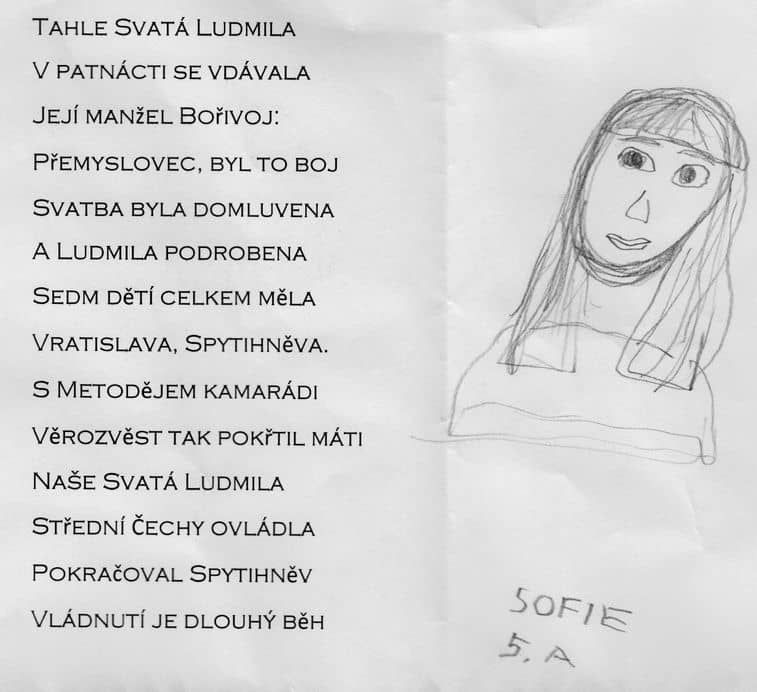 Tahle Svatá Ludmila
V patnácti se vdávala
Její manžel Bořivoj:
Přemyslovec, byl to boj
Svatba byla domluvena
A Ludmila podrobena
Sedm dětí celkem měla
Vratislava, Spytihněva.
S Metodějem kamarádi
Věrozvěst tak pokřtil máti
Naše Svatá Ludmila
Střední Čechy ovládla
Pokračoval Spytihněv
Vládnutí je dlouhý běh
SOFIE
5. A